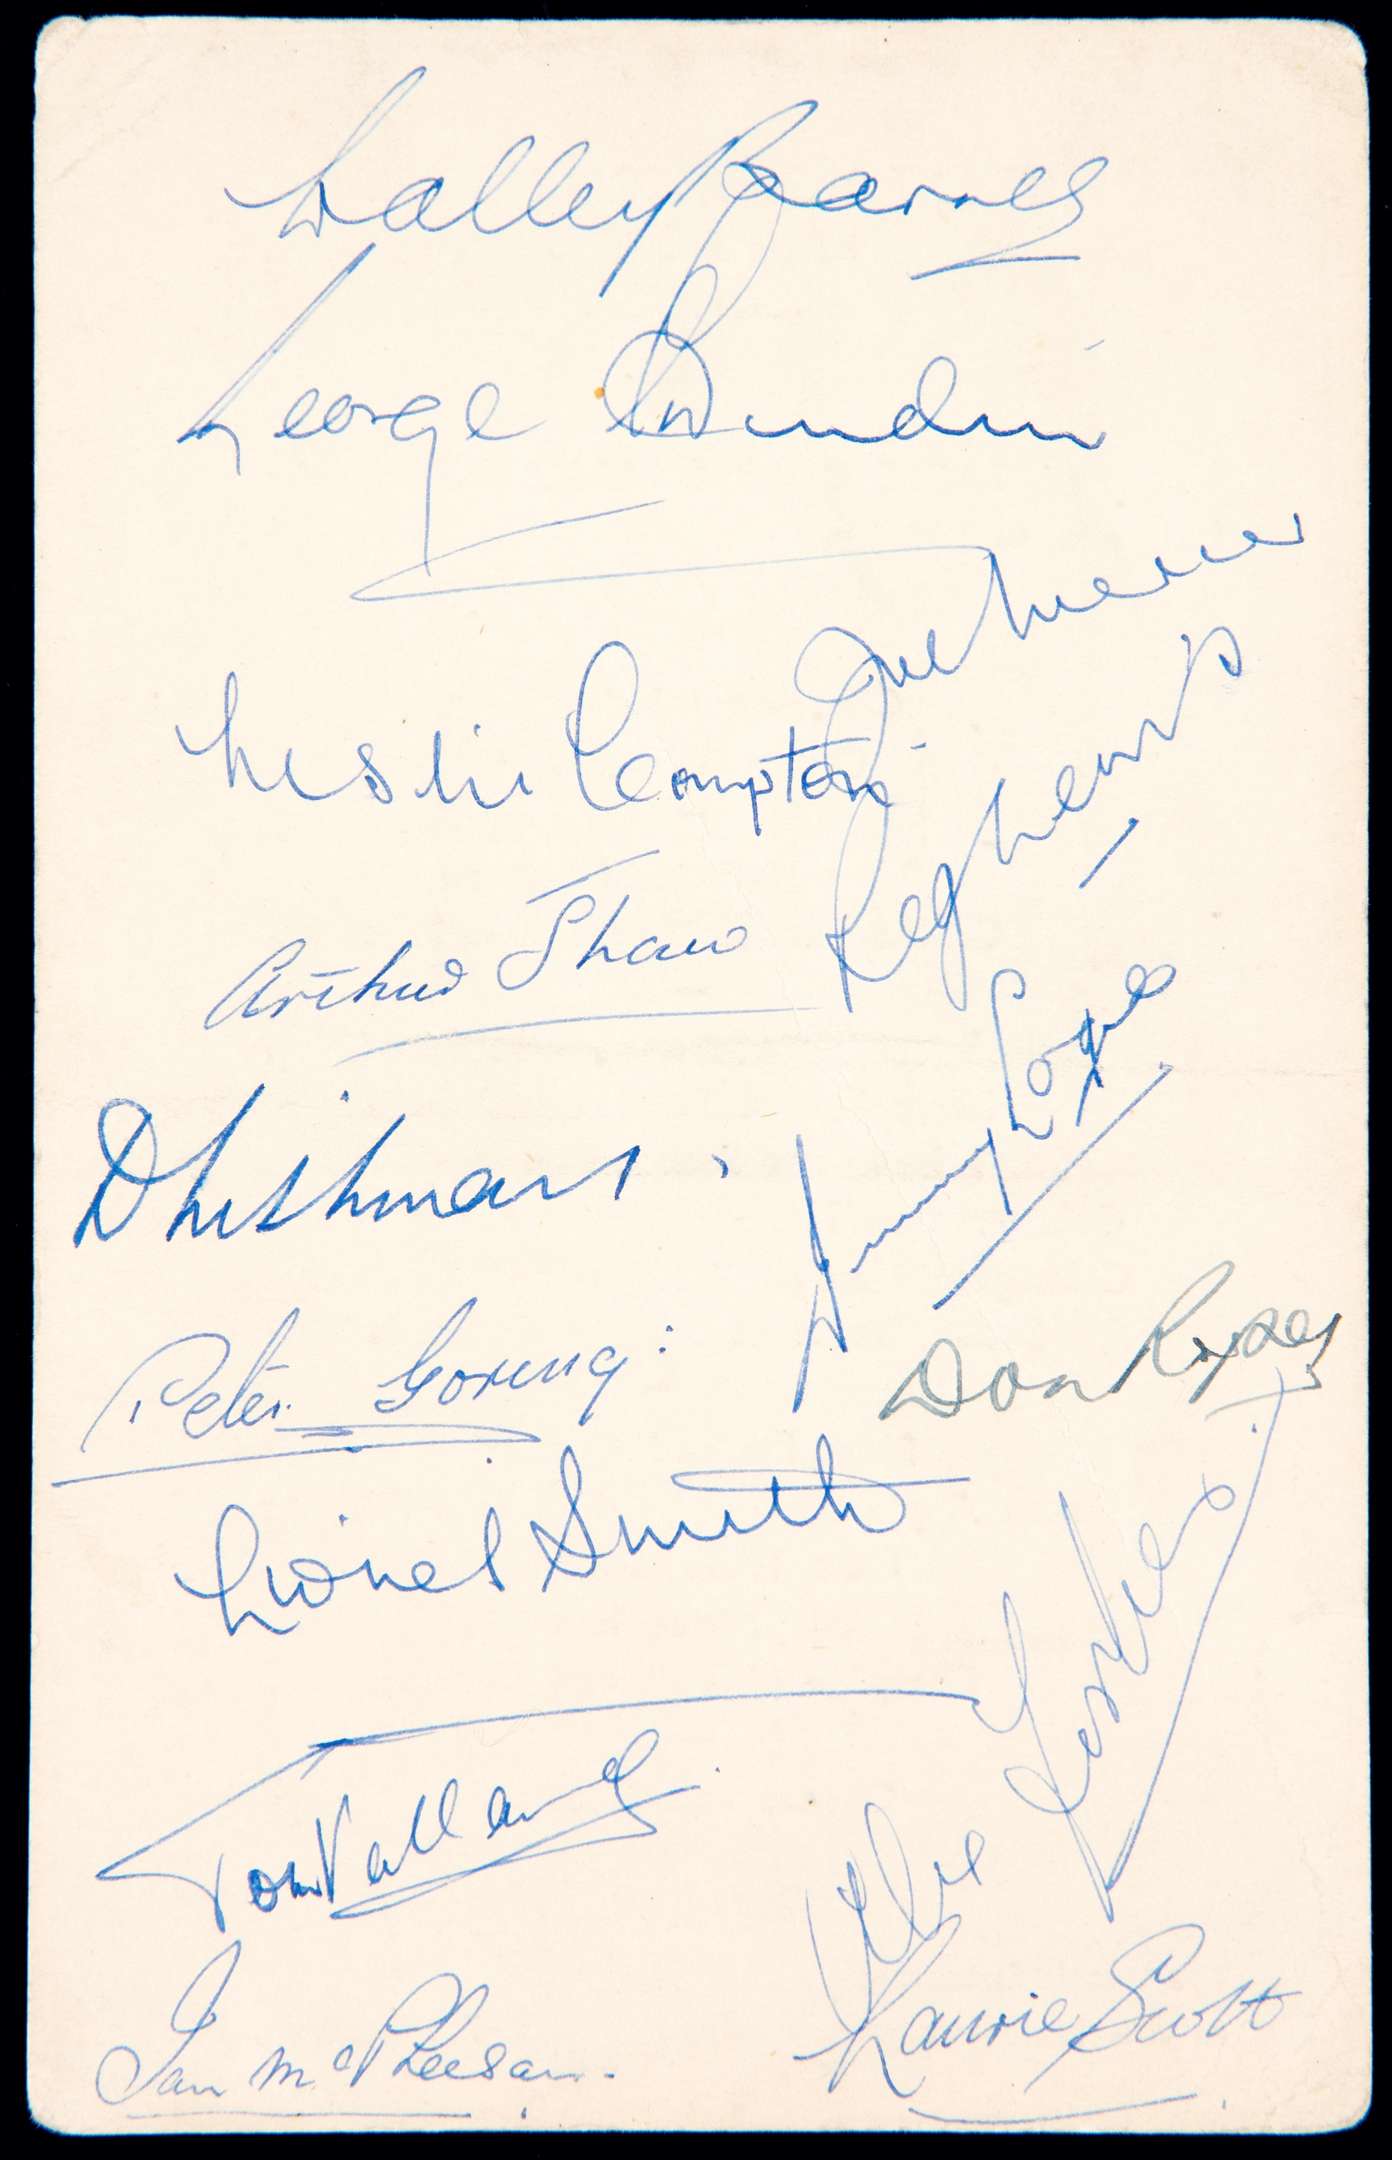 Walley Barnes
George Swindin
Joe Mercer
Leslie Compton
Reg Lewis
Arthur Shaw
Jimmy Logie
D Lishman.
Peter Goring.
Don Roper
Lionel Smith
Alex Forbes
Tom Vallance
Ian McPherson.
Laurie Scott